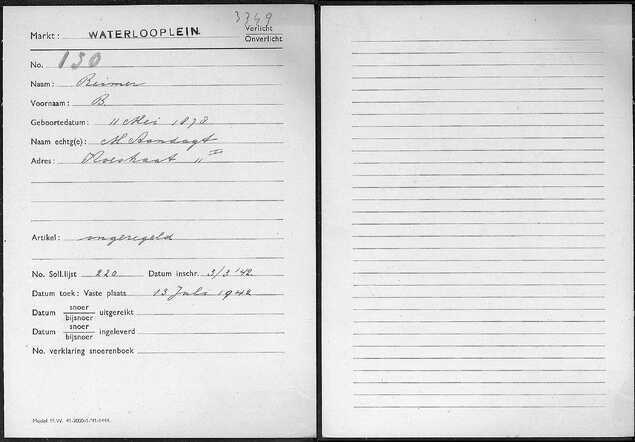 3749
Markt: WATERLOOPLEIN Verlicht
Onverlicht
No. 130
Naam: Reimer
Voornaam: B.
Geboortedatum: 11 Mei 1878
Naam echtg(e): M Aandagt
Adres: 11 II
Artikel: ongeregeld
No. Soll.lijst 220 Datum inschr. 3/3 '42
Datum toek: Vaste plaats 13 Juli 1942
Datum snoer uitgereikt
bijsnoer
Datum snoer ingeleverd
bijsnoer
No. verklaring snoerenboek
Model M.W.